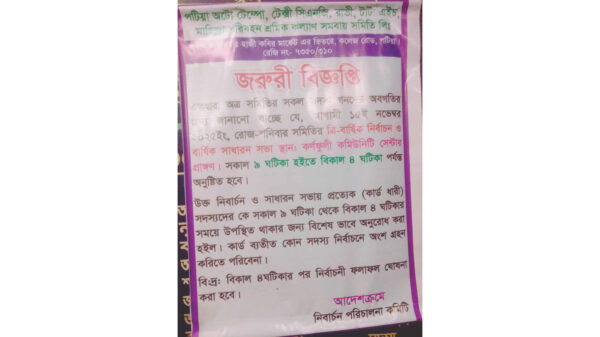 পটিয়া অটো টেম্পো, টেক্সী সিএনজি, রাভী, টাটা এইচ,
পরিবহন শ্রমিক কল্যাণ সমবায় সমিতি লিঃ
হাজী কবির মার্কেট এর ভিতরে, কলেজ রোড, পটিয়া।
রেজি নং- ৭৩৫০/৩১০
জরুরী বিজ্ঞপ্তি
অত্র সমিতির সকল সদস্য গনদের অবগতির
জন্য জানানো যাচ্ছে যে, আগামী ১৫ই নভেম্বর
২০২৫ইং, রোজ-শনিবার সমিতির ত্রি-বার্ষিক নির্বাচন ও
বার্ষিক সাধারন সভা স্থান: কর্ণফুলী কমিউনিটি সেন্টার
প্রাঙ্গণ। সকাল ৯ ঘটিকা হইতে বিকাল ৪ ঘটিকা পর্যন্ত
অনুষ্টিত হবে।
উক্ত নির্বাচন ও সাধারন সভায় প্রত্যেক (কার্ড ধারী)
সদস্যদের কে সকাল ৯ ঘটিকা থেকে বিকাল ৪ ঘটিকার
সময়ে উপস্থিত থাকার জন্য বিশেষ ভাবে অনুরোধ করা
হইল। কার্ড ব্যতীত কোন সদস্য নির্বাচনে অংশ গ্রহন
করিতে পারিবেনা।
বি:দ্র: বিকাল ৪ঘটিকার পর নির্বাচনী ফলাফল ঘোষনা
করা হবে।
আদেশক্রমে
নির্বাচন পরিচালনা কমিটি